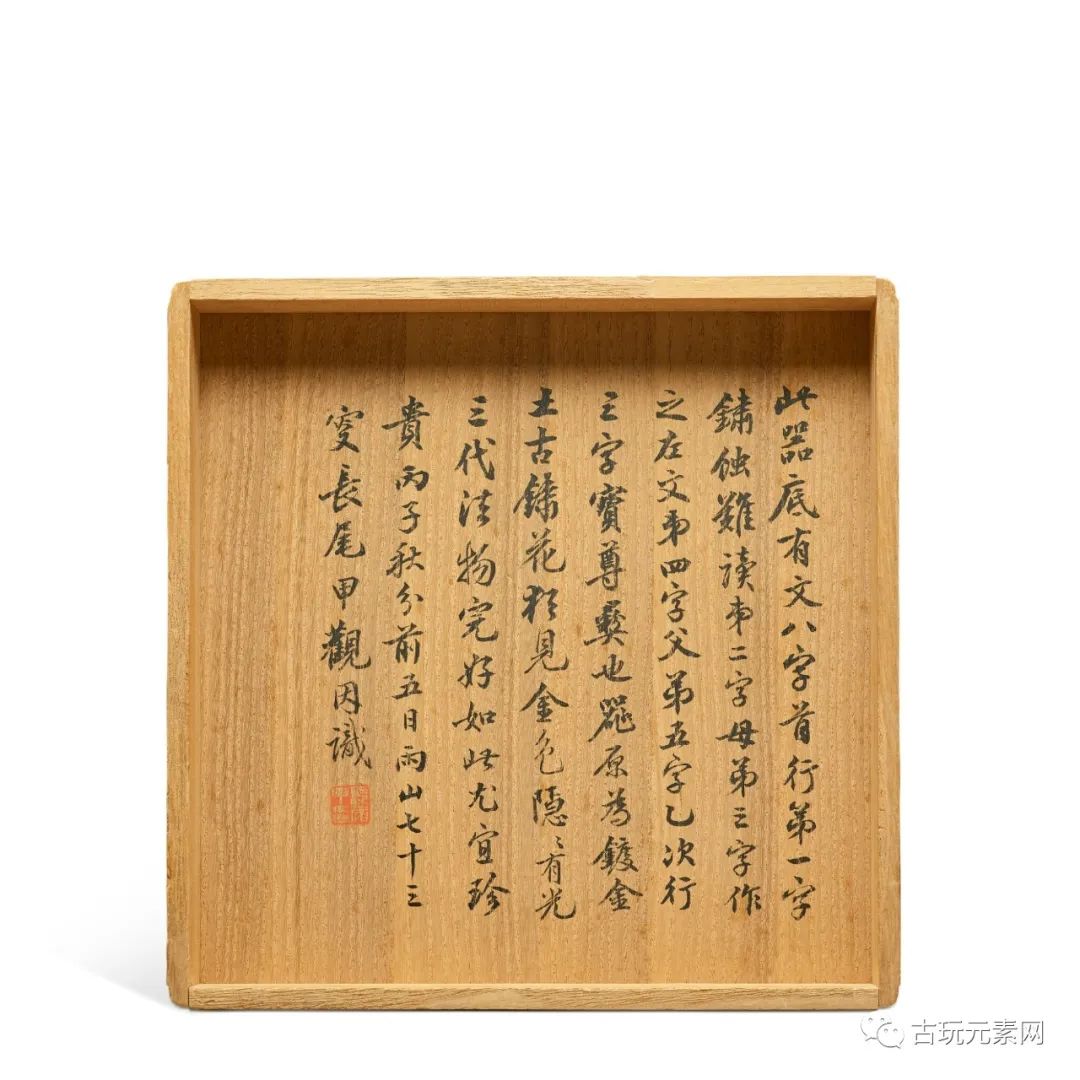 此器底有文八字首行第一字
鏽蝕難讀弟二字母弟三字作
之左文弟四字父第五字乙次行
三字寶尊彝也器原為鍍金
土古鏽花猶見金色隱〻有光
三代法物完好如此尤宜珍
貴丙子秋分前五日雨山七十三
叟長尾甲觀因識
古玩元素网